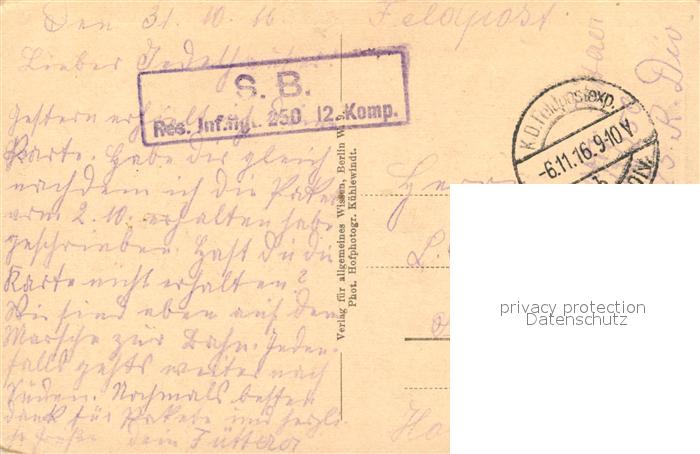 Den 31. 10. 16
Feldpost
Lieber
S. B.
Res. Inf. Rgt. 250, 12. Komp.
K.D. Feldpostexp.
-6.11.16.9-10 V
Gestern erhielt ich
Karte. Habe dir gleich
nachdem ich die Pakete
vom 2. 10. erhalten habe
geschrieben. Hast du die
Karte nicht erhalten?
Wir sind eben auf dem
Marsche zur Bahn. Jeden-
falls gehts weiter nach
Süden. Nochmals besten
dank für Pakete und herzl.
Dein
Herr
R. Div
Verlag für allgemeines Wissen, Berlin W. 9.
Phot. Hofphotogr. Kühlewindt.
privacy protection
Datenschutz